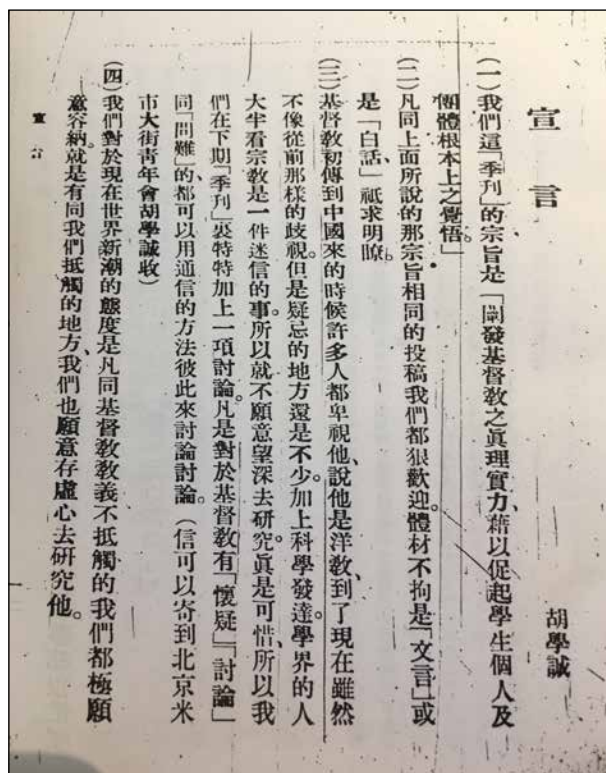 宣言
胡學誠
(一)我們這「季刊」的宗旨是「闡發基督敎之眞理實力、藉以促起學生個人及
團體根本上之覺悟。」
(二)凡同上面所說的那宗旨相同的投稿我們都狠歡迎。體材不拘是「文言」或
是「白話」、祇求明瞭。
(三)基督敎初傳到中國來的時候許多人都卑視他、說他是洋敎、到了現在雖然
不像從前那樣的歧視。但是疑忌的地方還是不少。加上科學發達。學界的人
大半看宗敎是一件迷信的事。所以就不願意望深去研究。眞是可惜、所以我
們在下期「季刊」裏特特加上一項討論。凡是對於基督敎有「懷疑」「討論」
同「問難」的、都可以用通信的方法彼此來討論討論。(信可以寄到北京米
市大街靑年會胡學誠收)
(四)我們對於現在世界新潮的態度是凡同基督敎敎義不抵觸的我們都極願
意容納。就是有同我們抵觸的地方、我們也願意存虛心去研究他。
宣言